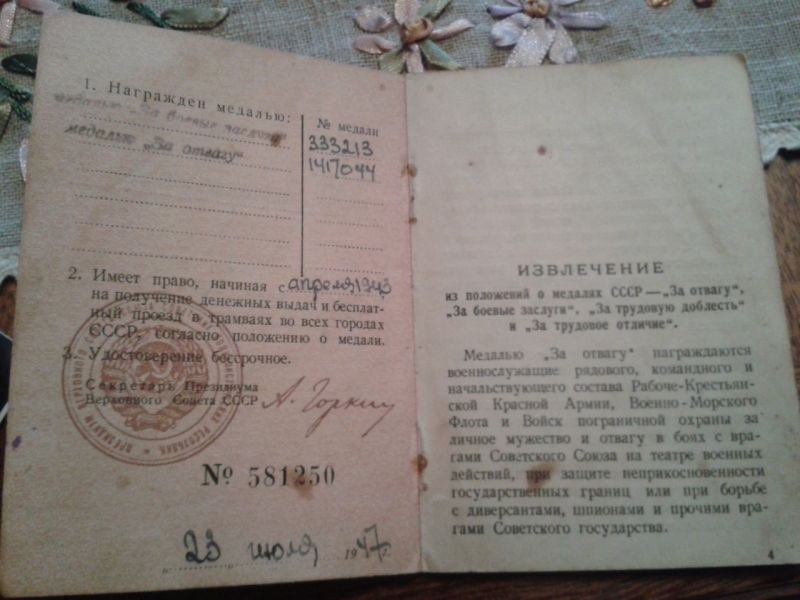 1. Награжден медалью:
медалью „За боевые заслуги"
медалью „За отвагу"
№ медали
333213
1417044
2. Имеет право, начиная с апреля 1943
на получение денежных выдач и бесплат-
ный проезд в трамваях во всех городах
СССР, согласно положению о медали.
3. Удостоверение бессрочное.
Секретарь Президиума
Верховного Совета СССР А. Горкин
№ 581250
„ 23 июля 1947 г.
ИЗВЛЕЧЕНИЕ
из положений о медалях СССР—„За отвагу",
„За боевые заслуги", „За трудовую доблесть"
и „За трудовое отличие".
Медалью „За отвагу" награждаются
военнослужащие рядового, командного и
начальствующего состава Рабоче-Крестьян-
ской Красной Армии, Военно-Морского
Флота и Войск пограничной охраны за
личное мужество и отвагу в боях с вра-
гами Советского Союза на театре военных
действий, при защите неприкосновенности
государственных границ или при борьбе
с диверсантами, шпионами и прочими вра-
гами Советского государства.
4